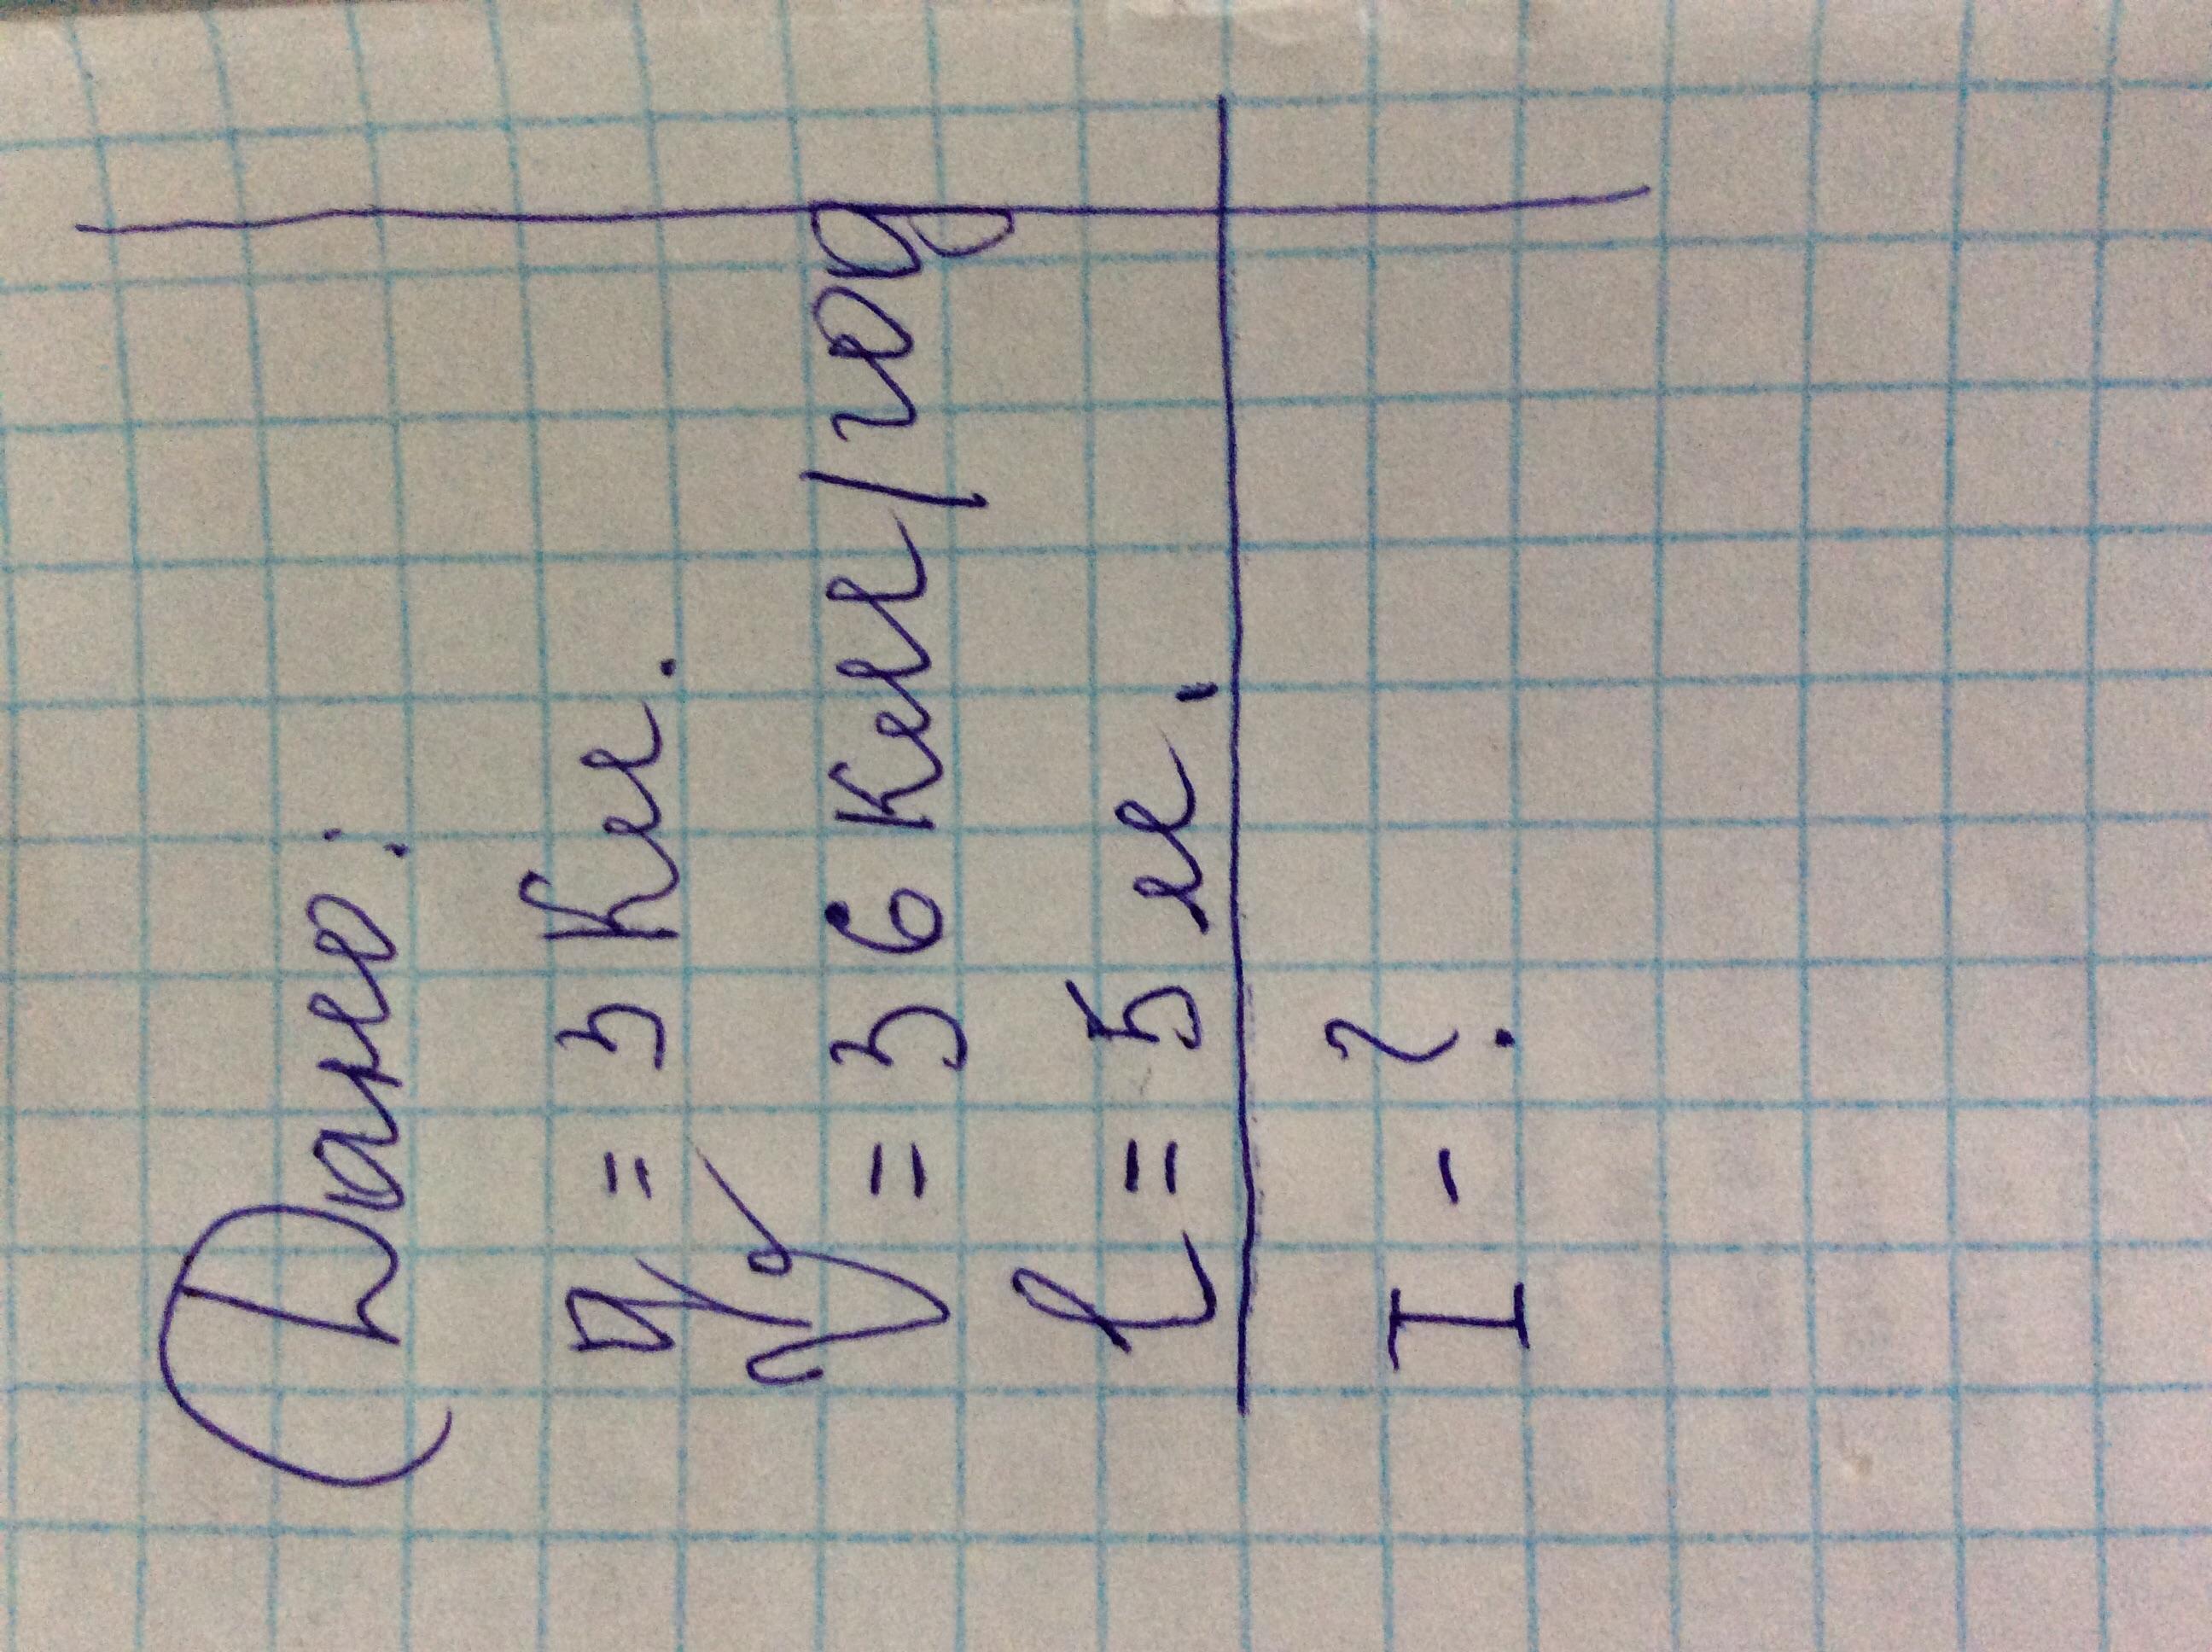 Дано:
q = 3 Кл.
V = 36 км/год
l = 5 м.
I - ?